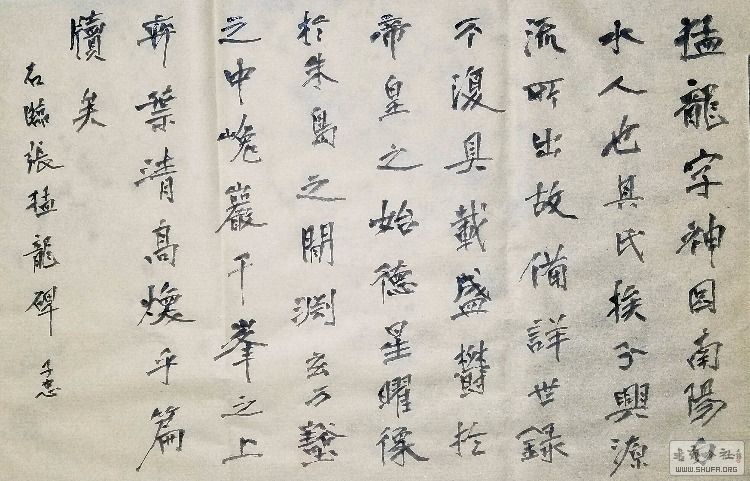 猛龍字神囧南陽白
水人也其氏族子興源
流所出故備詳世錄
不復具載盛欝於
帝皇之始德星曜像
於朱鳥之間渊玄万壑
之中巉巖千峯之上
弈葉清高煥乎篇
牘矣
右臨張猛龍碑 子忠
WWW.SHUFA.ORG